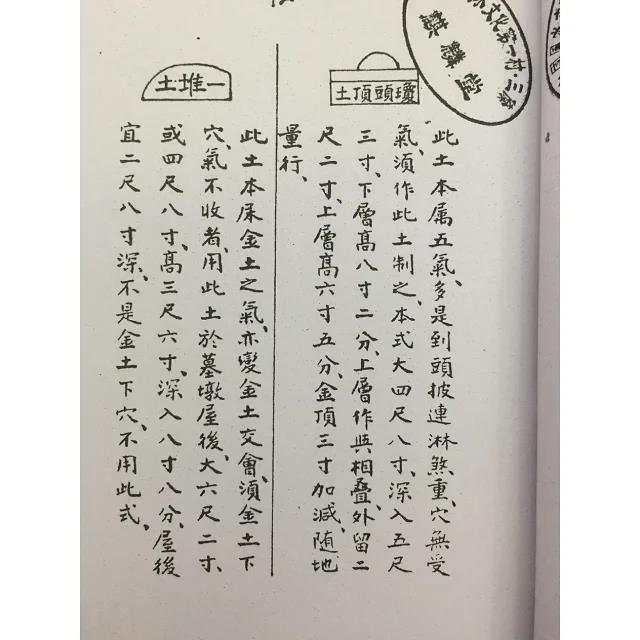 瓊頭頂土
此土本属五氣、多是到頭披連淋煞重、穴無受
氣、須作此土制之、本式大四尺八寸、深入五尺
三寸、下層髙八寸二分、上層作與相叠、外留二
尺二寸、上層髙六寸五分、金頂三寸加減、随地
量行、
一堆土
此土本屎金土之氣、亦變金土交會、須金土下
穴、氣不收者、用此土於墓墩屋後、大六尺二寸、
或四尺八寸、髙三尺六寸、深入八寸八分、屋後
宜二尺八寸深、不是金土下穴、不用此式、
文化第一村·三
麒麟堂